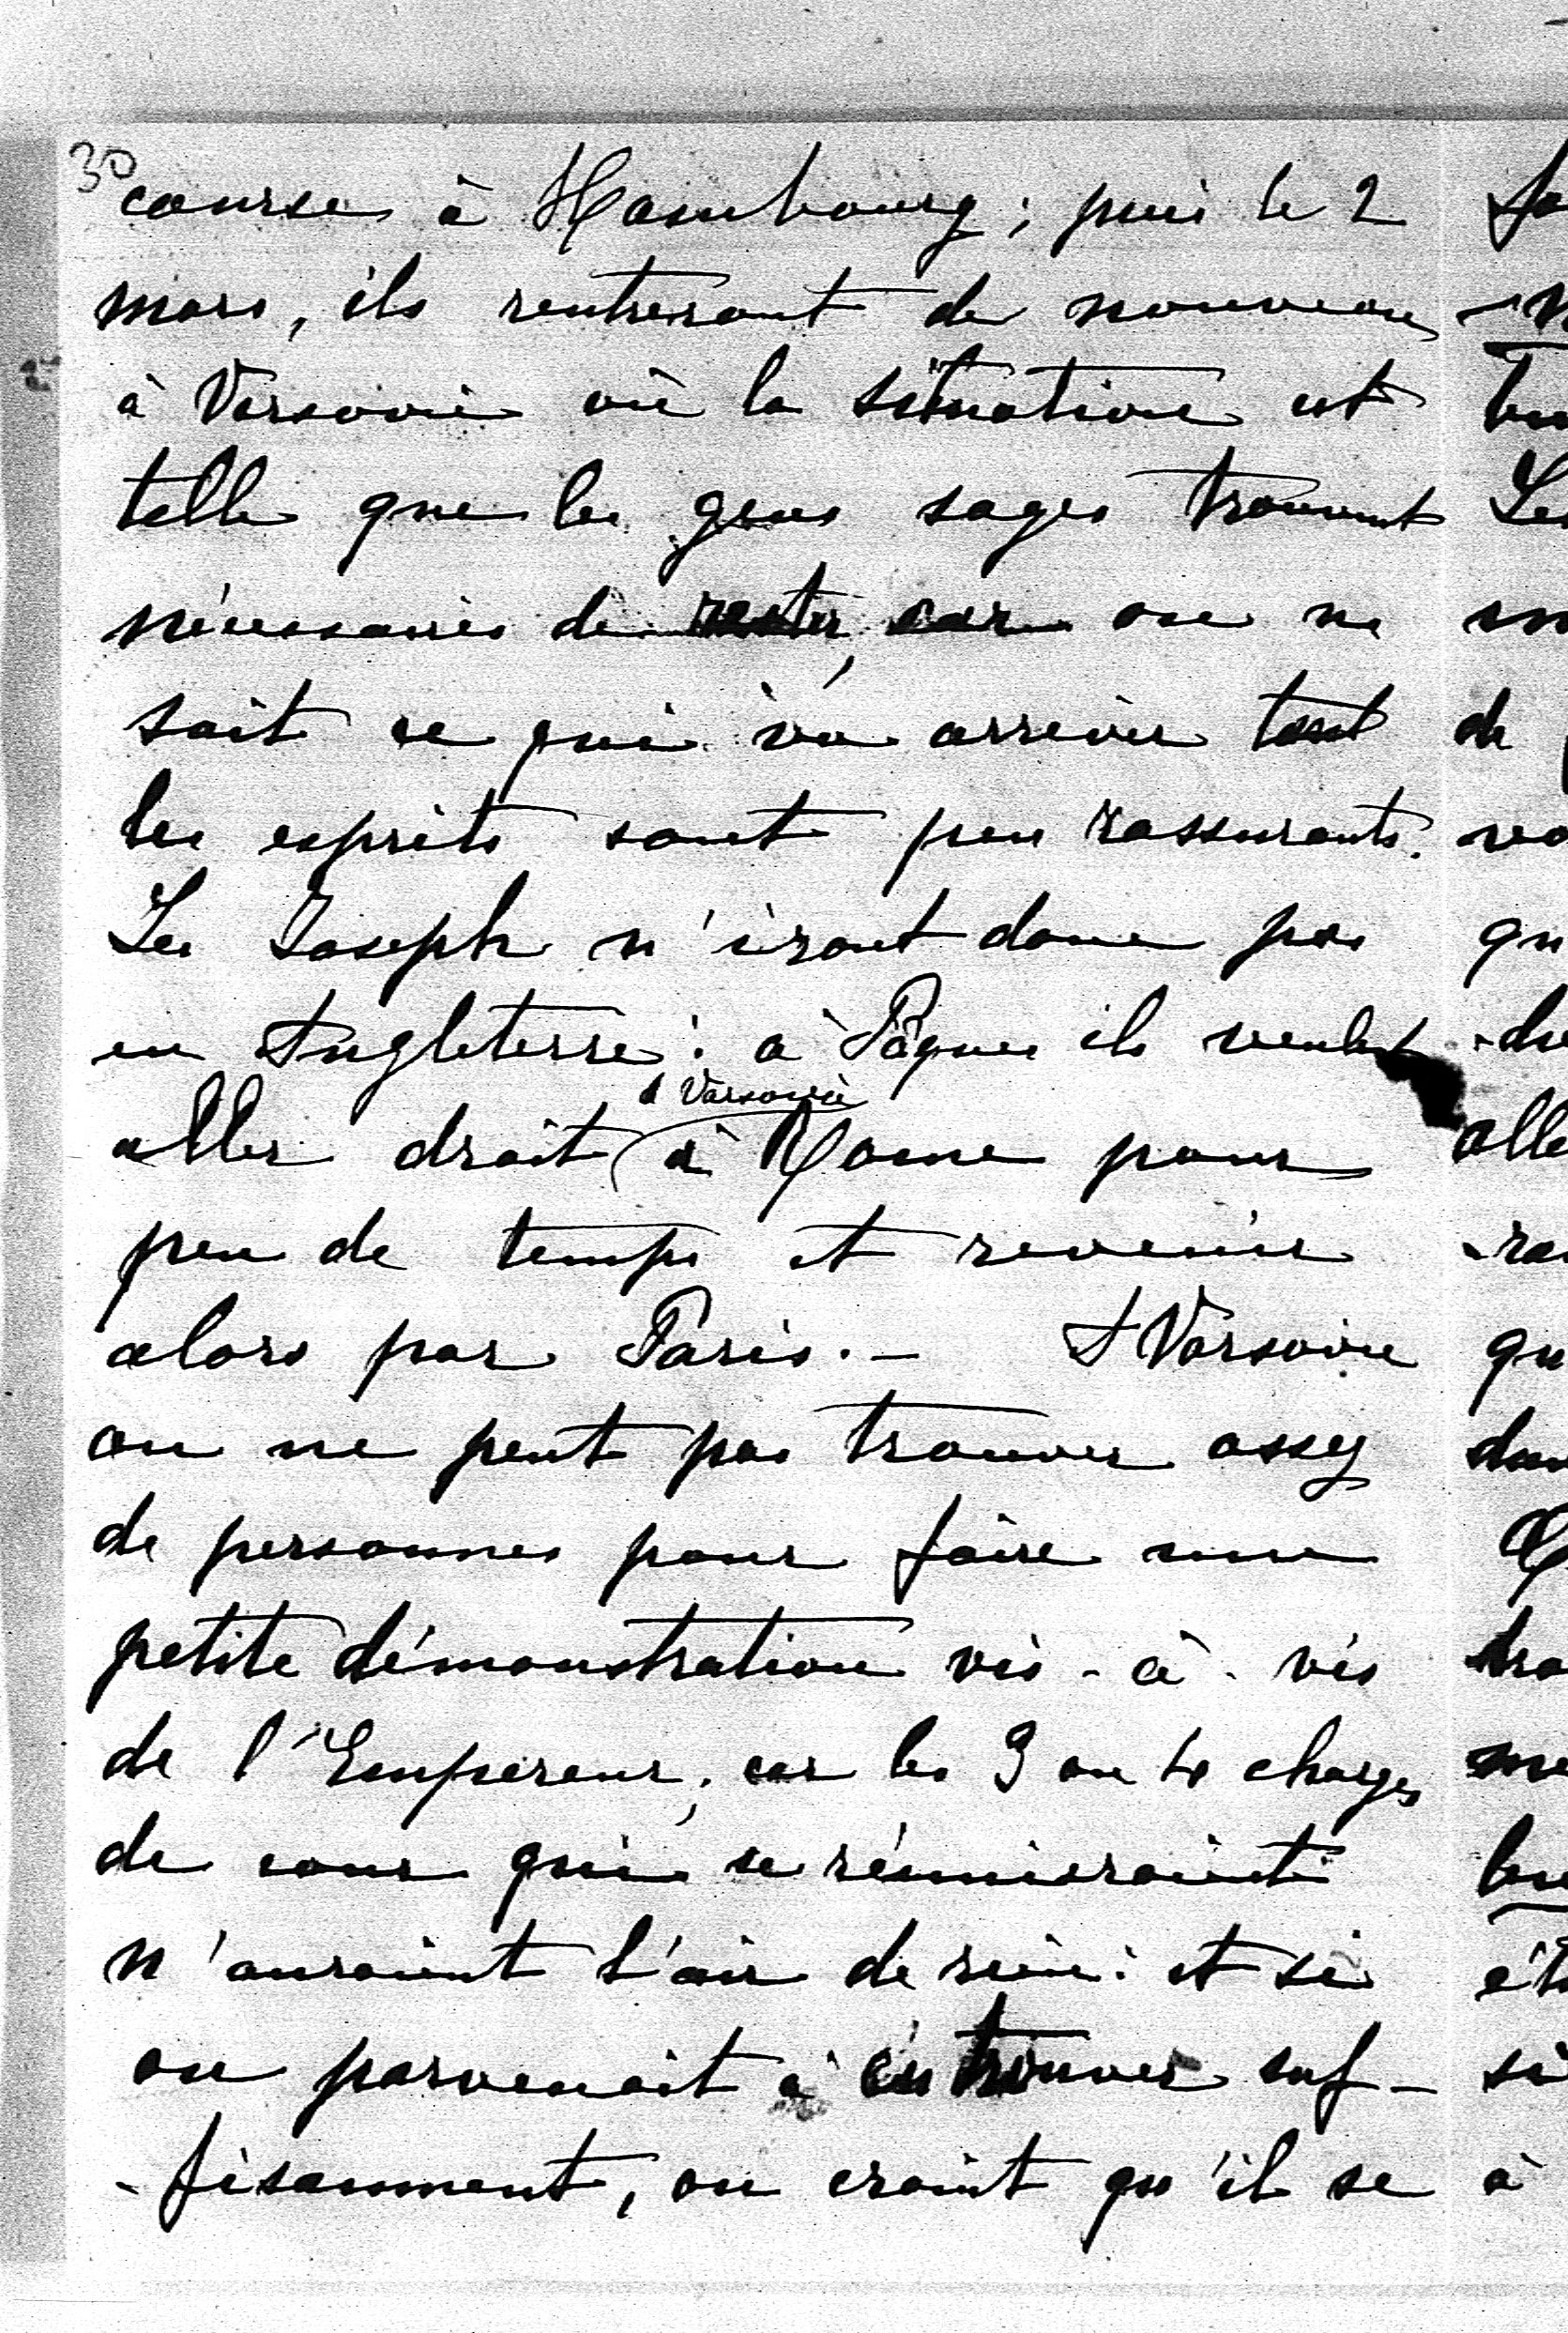 30
course à Hambourg ; puis le 2
mars, ils rentreront de nouveau
à Varsovie où la situation est
telle que les gens sages trouvent
nécessaires de rester, car on ne
sait ce qui va arriver tant
les esprits sont peu rassurants.
Les Joseph n'iront donc pas
en Angleterre : à Pâques ils veulent
d Varsovie
aller droit à Rome pour
peu de temps et revenir
alors par Paris. — A Varsovie
on ne peut pas trouver assez
de personnes pour faire une
petite démonstration vis-à-vis
de l'Empereur, car les 3 ou 4 charges
de cour qui se réuniraient
n'auraient l'air de rien : et si
on parvenait à en trouver suf-
-fisamment, on craint qu'il se